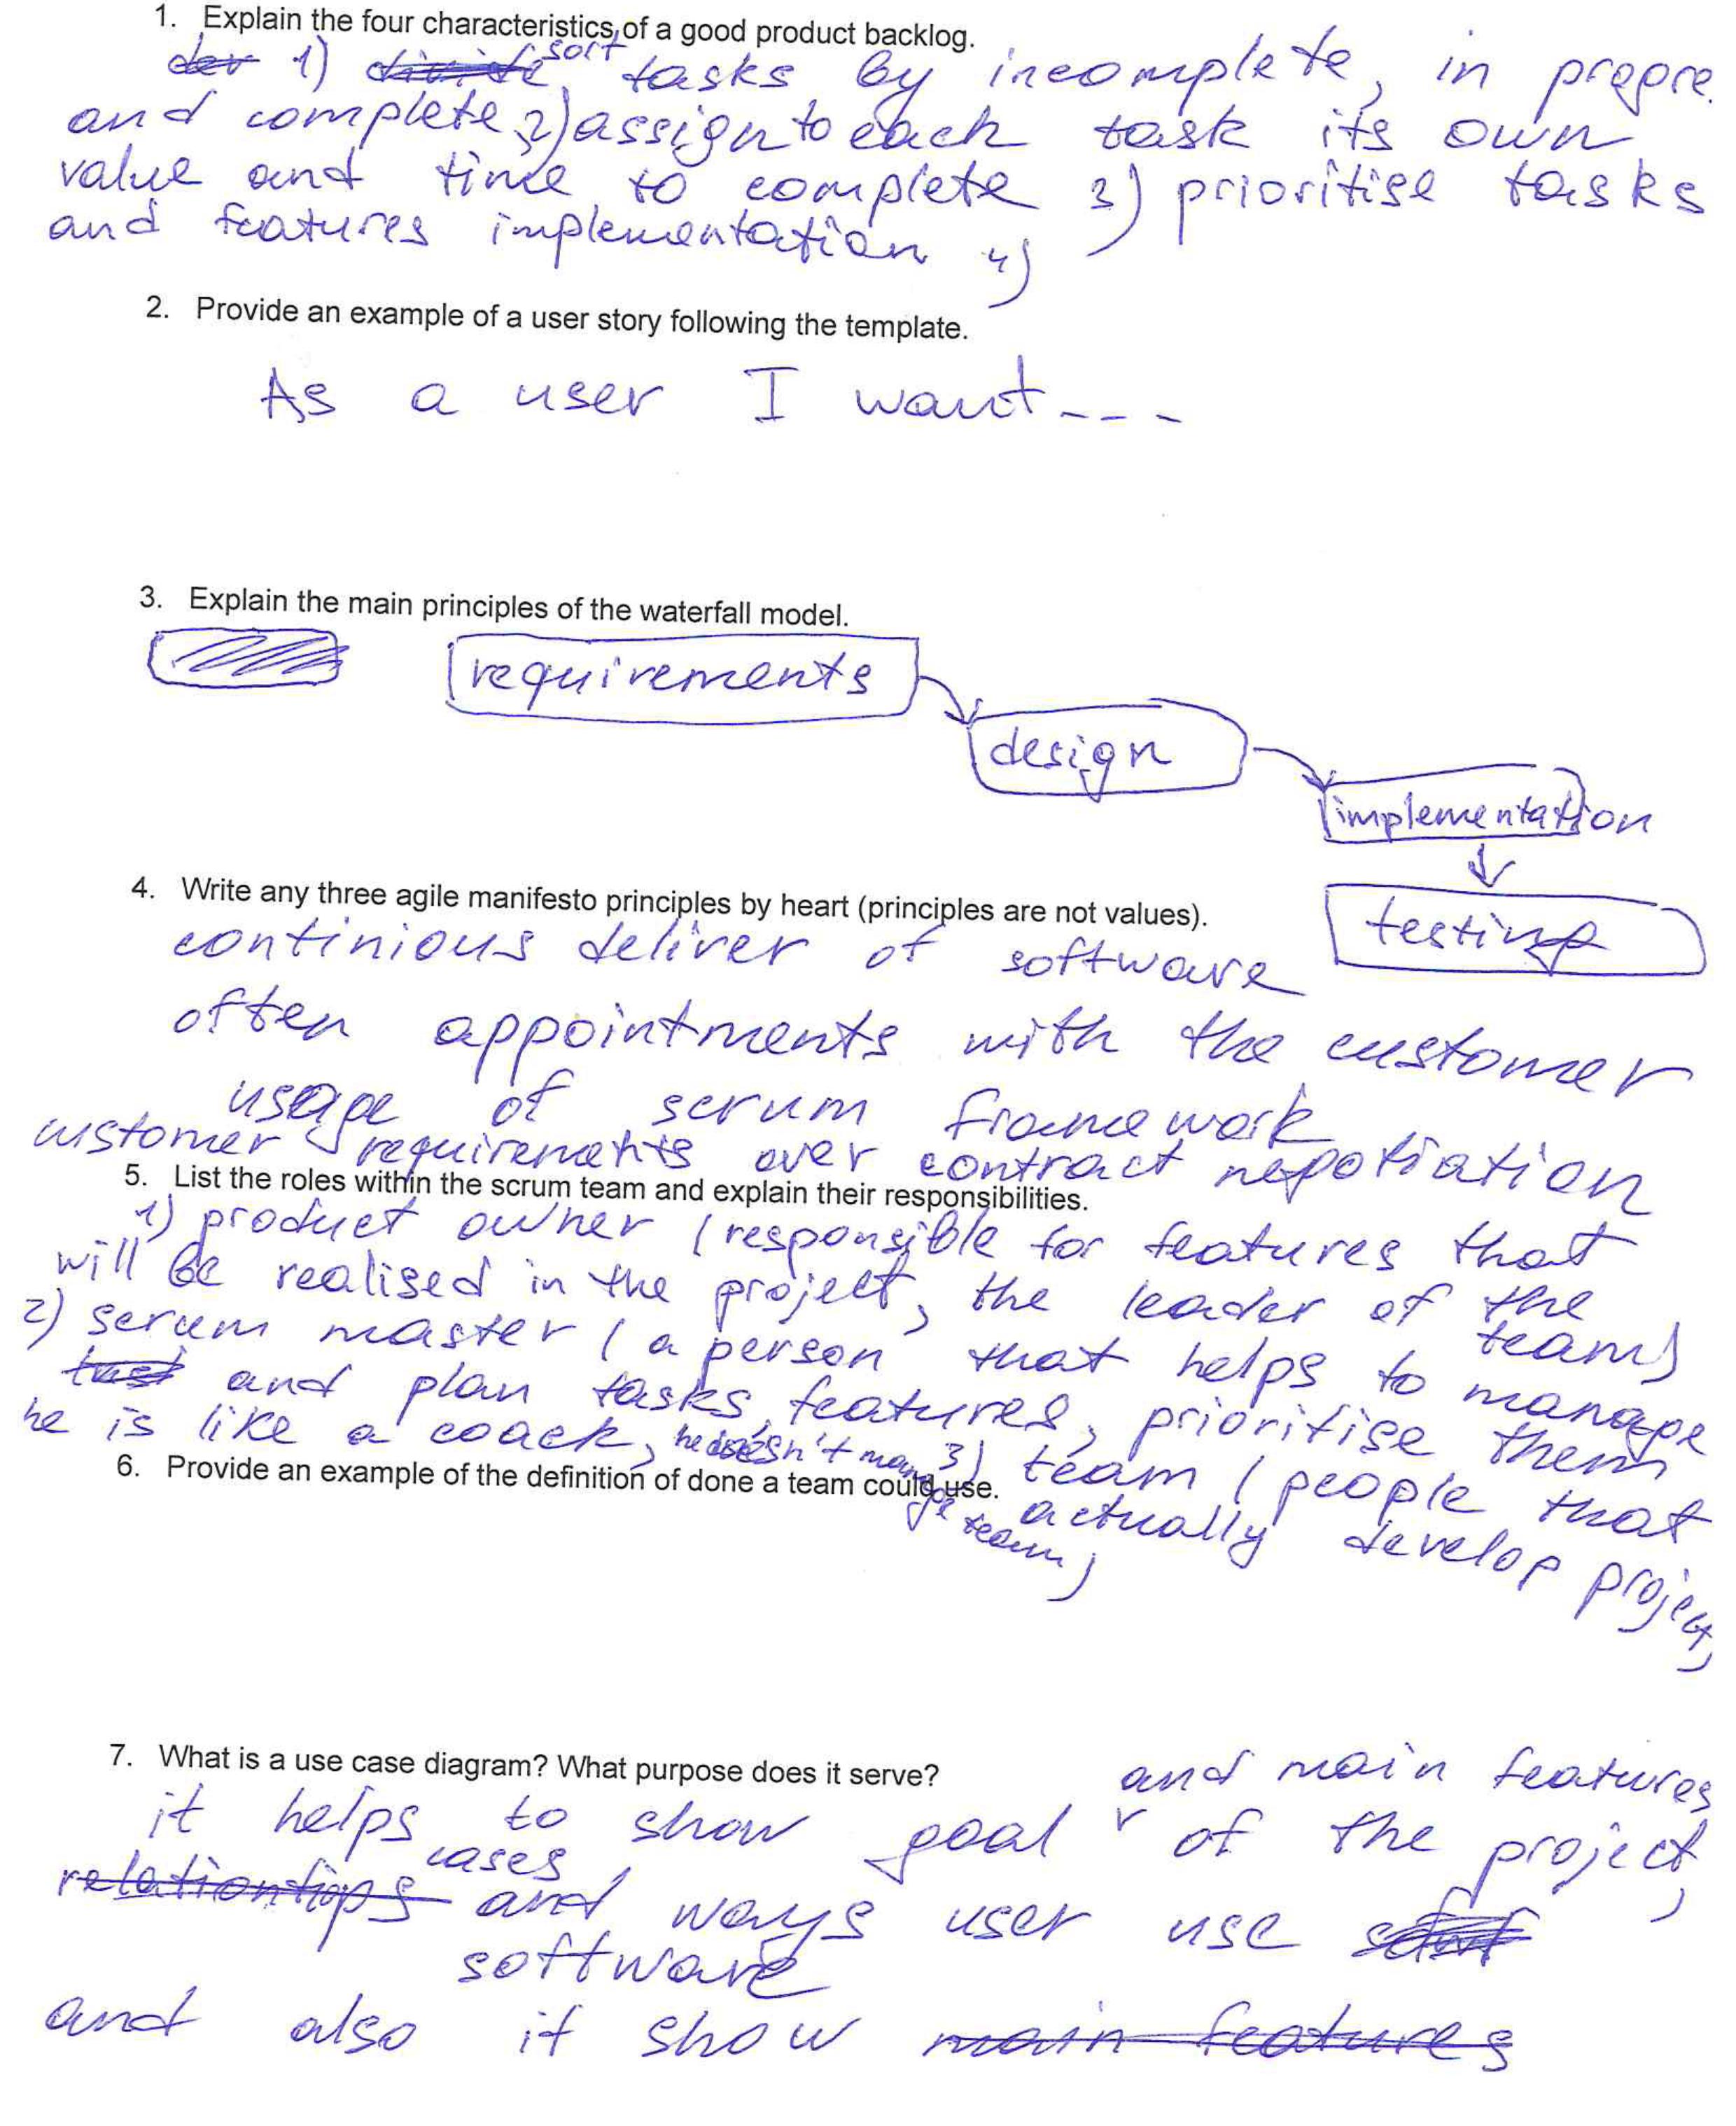 1. Explain the four characteristics of a good product backlog.
1) sort tasks by incomplete, in progre
and complete 2) assign to each task its own
value and time to complete 3) prioritise tasks
and features implementation 4)
2. Provide an example of a user story following the template.
As a user I want ---
3. Explain the main principles of the waterfall model.
requirements
design
implementation
testing
4. Write any three agile manifesto principles by heart (principles are not values).
continious deliver of software
often appointments with the customer
usage of scrum framework
customer requirements over contract negotiation
5. List the roles within the scrum team and explain their responsibilities.
1) product owner (responsible for features that
will be realised in the project, the leader of the
team)
2) scrum master (a person that helps to manage
and plan tasks, features, prioritise them
he is like a coach, he doesn't manage team)
3) team (people that
actually develop project)
6. Provide an example of the definition of done a team could use.
7. What is a use case diagram? What purpose does it serve?
and main features
it helps to show goal of the project,
relationships cases and ways user use
software
and also it show main features